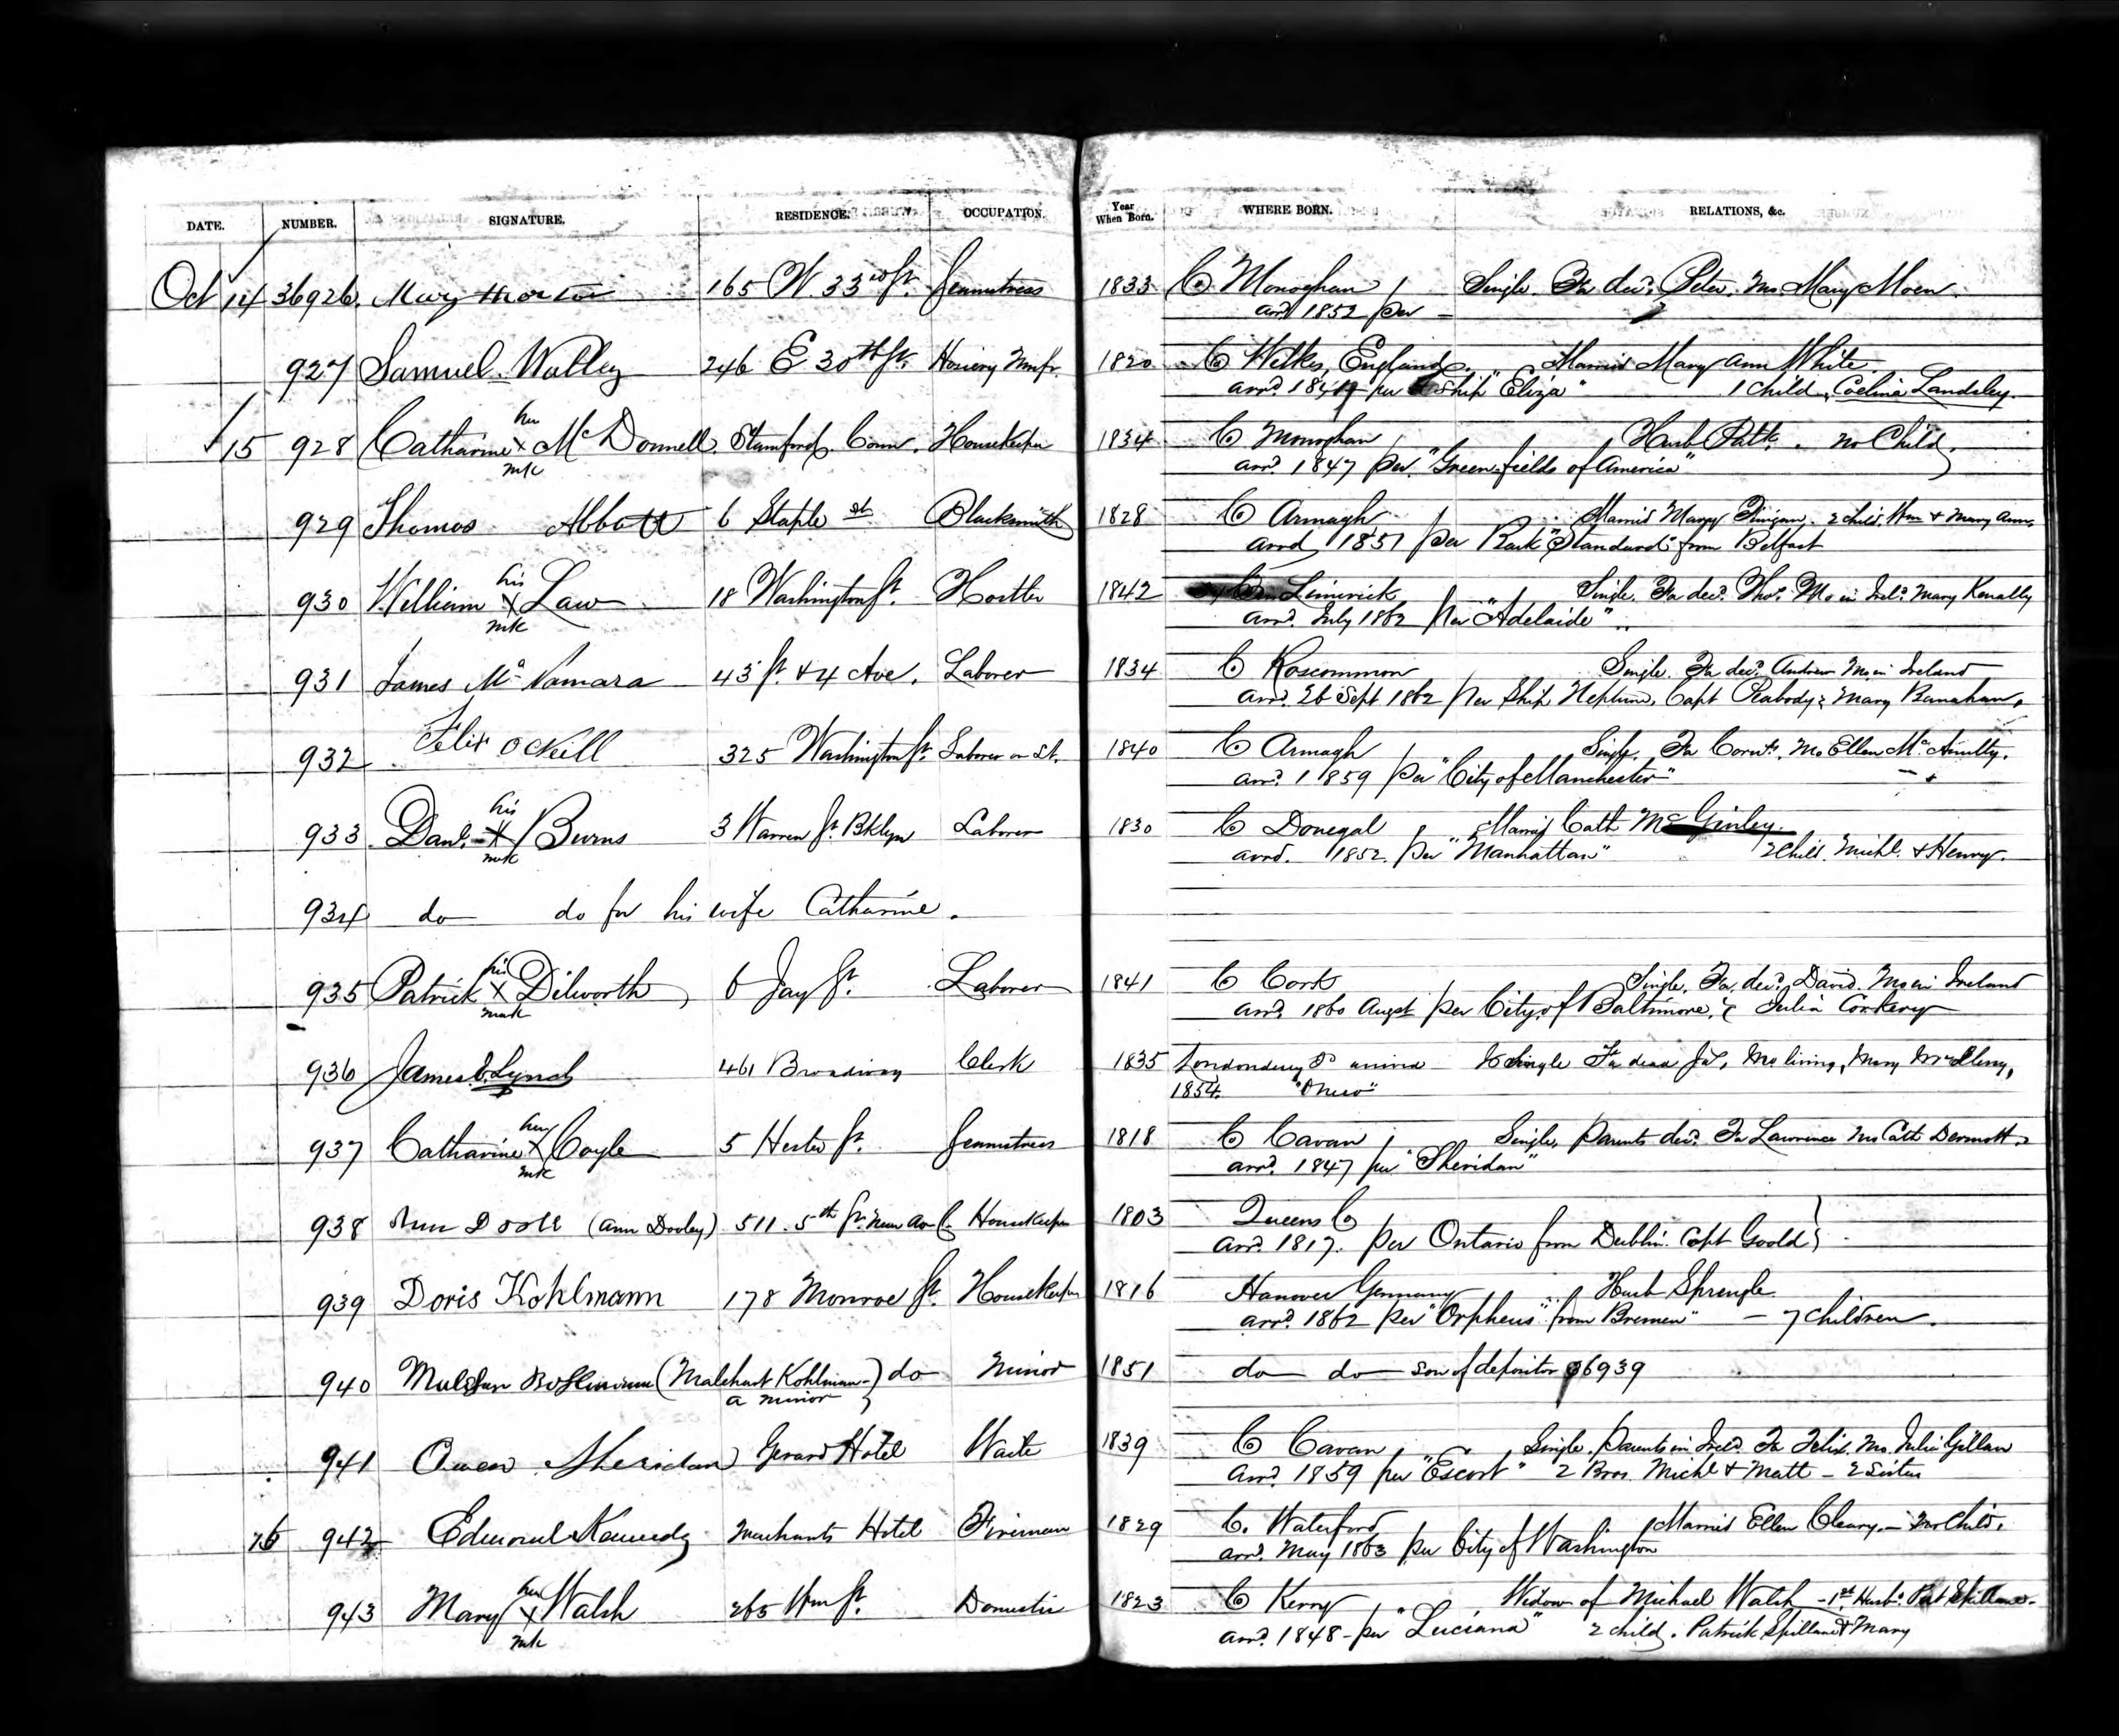 DATE. NUMBER. SIGNATURE. RESIDENCE. OCCUPATION. Year When Born. WHERE BORN. RELATIONS, &c.
Oct 14 36926. Mary 165 W. 33rd St. Seamstress 1833 Co Monaghan Single. Fa decd. Peter. Mo Mary Moen.
arrd 1852 per —
927 Samuel Walley 246 E 30th St. Hosiery Mnfr. 1820 Co Wilkes, England. Married Mary Ann White.
arrd. per Ship "Eliza" 1 Child, Coelina Landsley.
her
15 928 Catharine X Mc Donnell. Stamford, Conn. Housekeeper 1834 Co Monaghan Husb Patk. no Child.
mk arrd. 1847 per. "Greenfields of America"
929 Thomas Abbott 6 Staple St Blacksmith 1828 Co Armagh Married Mary Finigan. 2 child. Wm & Mary Ann
arrd 1851 per Bark "Standard" from Belfast
his
930 William X Law 18 Washington St. Hostler 1842 Limerick Single. Fa decd. Thos. Mo in Ireld. Mary Kenally
mk arrd. July 1862 per "Adelaide"
931 James Mc Namara 43 St. & 4 Ave. Laborer 1834 Co Roscommon Single. Fa decd. Andrew Mo in Ireland
arrd. 26 Sept 1862 per Ship Neptune, Capt Peabody; Mary Banahan.
932 Felix O Neill 325 Washington St. Laborer on St. 1840 Co Armagh Single. Fa Mo Ellen
arrd. 1859 per "City of Manchester"
his
933 Danl. X Burns 3 Warren St. Bklyn Laborer 1830 Co Donegal Married Cath Mc Ginley.
mk arrd. 1852. per "Manhattan" 2 Child. Michl. & Henry.
934 do do for his wife Catharine.
his
935 Patrick X Dilworth 6 Jay St. Laborer 1841 Co Cork Single. Fa. decd. David. Mo in Ireland
mark arrd. 1860 Augst per City of Baltimore. & Julia Corkery
936 James Lynch 461 Broadway Clerk 1835 Londonderry Single Fa dead Mo living, Mary
1854. "Ohio"
her
937 Catharine X Coyle 5 Hester St. Seamstress 1818 Co Cavan Single, Parents decd. Fa Lawrence Mo Cath Dermott.
mk arrd. 1847 per "Sheridan"
938 (Ann Dooley) 511. 5th St. near Av C Housekeeper 1803 Queens Co
Arrd. 1817. per Ontario from Dublin. Capt Goold
939 Doris Kohlmann 178 Monroe St. Housekeeper 1816 Hanover Germany Husb Sprengle
arrd. 1862 per "Orpheus" from Bremen" — 7 children.
940 (Malchart Kohlman—) do Minor 1851 do do son of depositor 36939
a minor
941 Owen Sheridan Gerard Hotel Waiter 1839 Co Cavan Single. Parents in Ireld. Fa Felix. Mo. Julia Gillan
arrd. 1859 per "Escort" 2 Bros. Michl & Matt — 2 Sisters
16 942 Edmond Kennedy Merchants Hotel Fireman 1829 Co. Waterford Married Ellen Cleary. — No Child.
arrd. May 1863 per City of Washington
her
943 Mary X Walsh 265 Wm St. Domestic 1823 Co Kerry Widow of Michael Walsh — 1st Husb. Pat Spillane
mk arrd. 1848 — per "Luciana" 2 child. Patrick Spillane & Mary